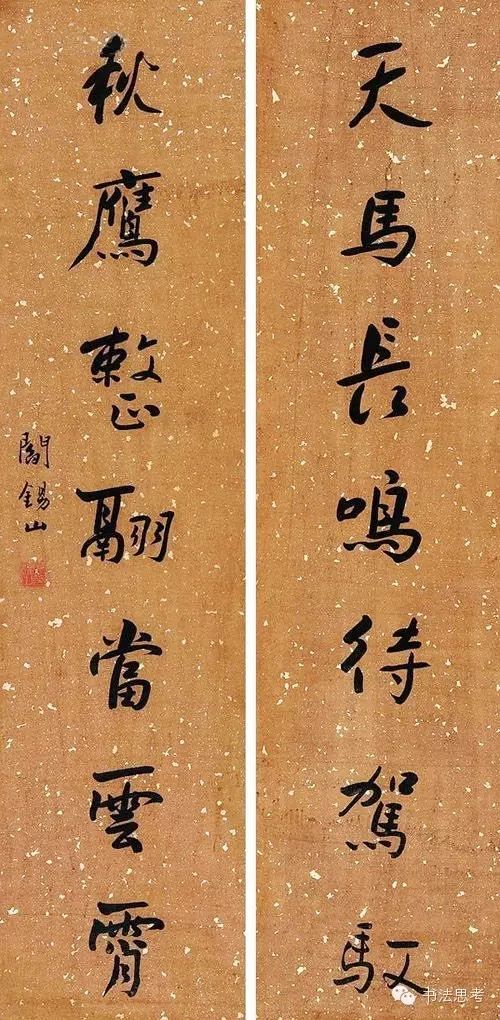 天馬長鳴待駕馭
秋鷹整翮當雲霄
閻錫山
书法思考